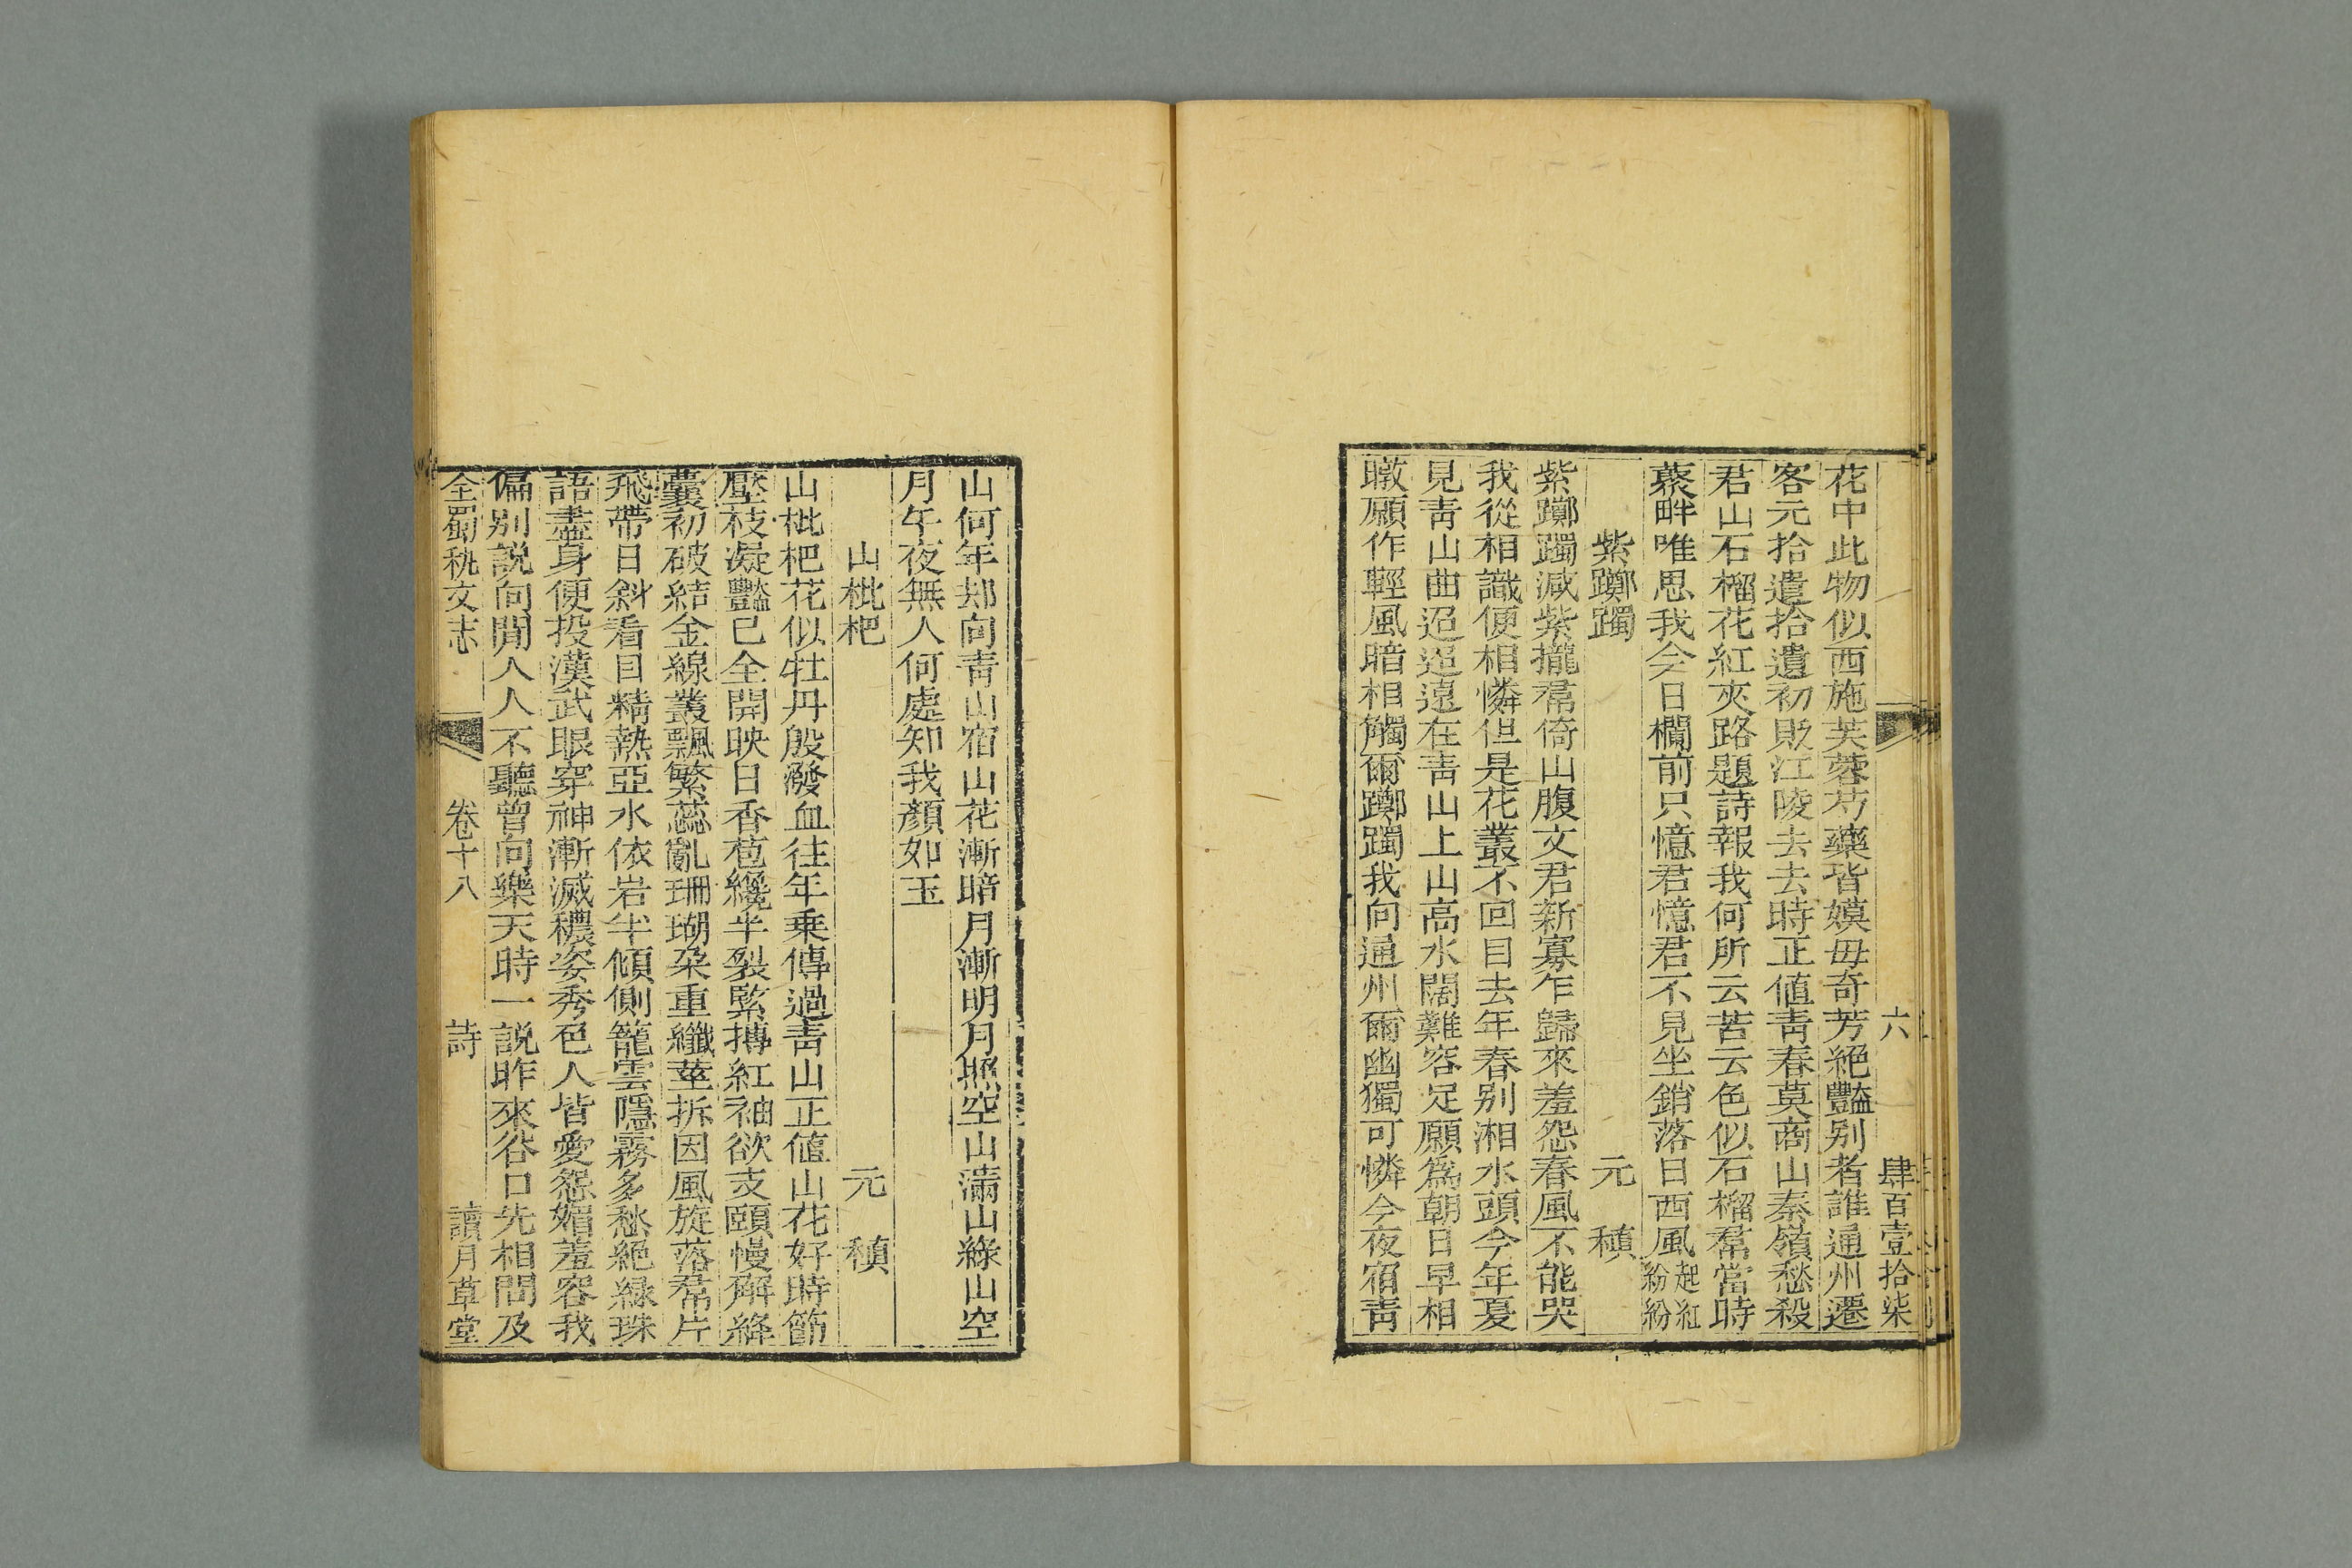 六　肆百壹拾柒
花中此物似西施芙蓉芍藥皆嫫母奇芳絕豔别者誰通州遷
客元拾遺拾遺初貶江陵去去時正值青春莫商山秦嶺愁殺
君山石榴花紅夾路題詩報我何所云苦云色似石榴帬當時
叢畔唯思我今日欄前只憶君憶君不見坐銷落日西風起紅
紛紛
紫躑躅　元　稹
紫躑躅滅紫攏帬倚山腹文君新寡乍歸來羞怨春風不能哭
我從相識便相憐但是花叢不回目去年春别湘水頭今年夏
見青山曲迢迢遠在青山上山高水闊難容足願爲朝日早相
暾願作輕風暗相觸爾躑躅我向通州爾幽獨可憐今夜宿青
山何年却向青山宿山花漸暗月漸明月照空山滿山綠山空
月午夜無人何處知我顏如玉
山枇杷　元　稹
山枇杷花似牡丹殷潑血往年乗傳過青山正值山花好時節
壓枝凝豔已全開映日香苞纔半裂緊摶紅袖欲支頤慢解絳
囊初破結金線叢飄繁蕊亂珊瑚朶重纖莖拆因風旋落帬片
飛帶日斜看目精熱亞水依岩半傾側籠雲隱霧多愁絕緑珠
語盡身便投漢武眼穿神漸滅穠姿秀色人皆愛怨媚羞容我
偏别説向閒人人不聽曾向樂天時一説昨來谷口先相問及
全蜀秇文志　卷十八　詩　讀月草堂